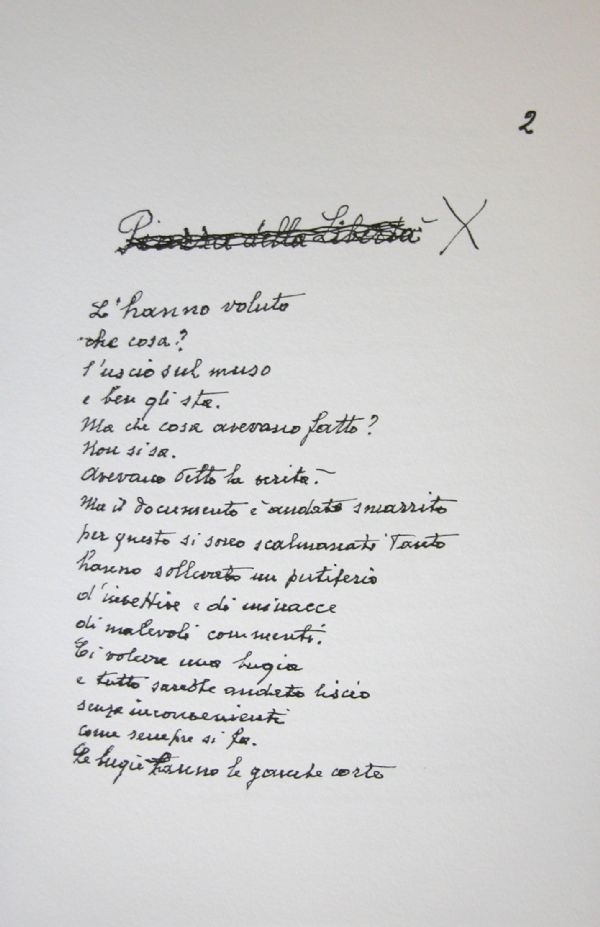 2
Piazza della Libertà X
L'hanno voluto
che cosa?
l'uscio sul muso
e ben gli sta.
Ma che cosa avevano fatto?
Non si sa.
Avevano detto la verità.
Ma il documento è andato smarrito
per questo si sono scalmanati Tanto
hanno sollevato un putiferio
d'invettive e di minacce
di malevoli commenti.
Ci voleva una bugia
e tutto sarebbe andato liscio
senza inconvenienti
come sempre si fa.
Le bugie hanno le gambe corte